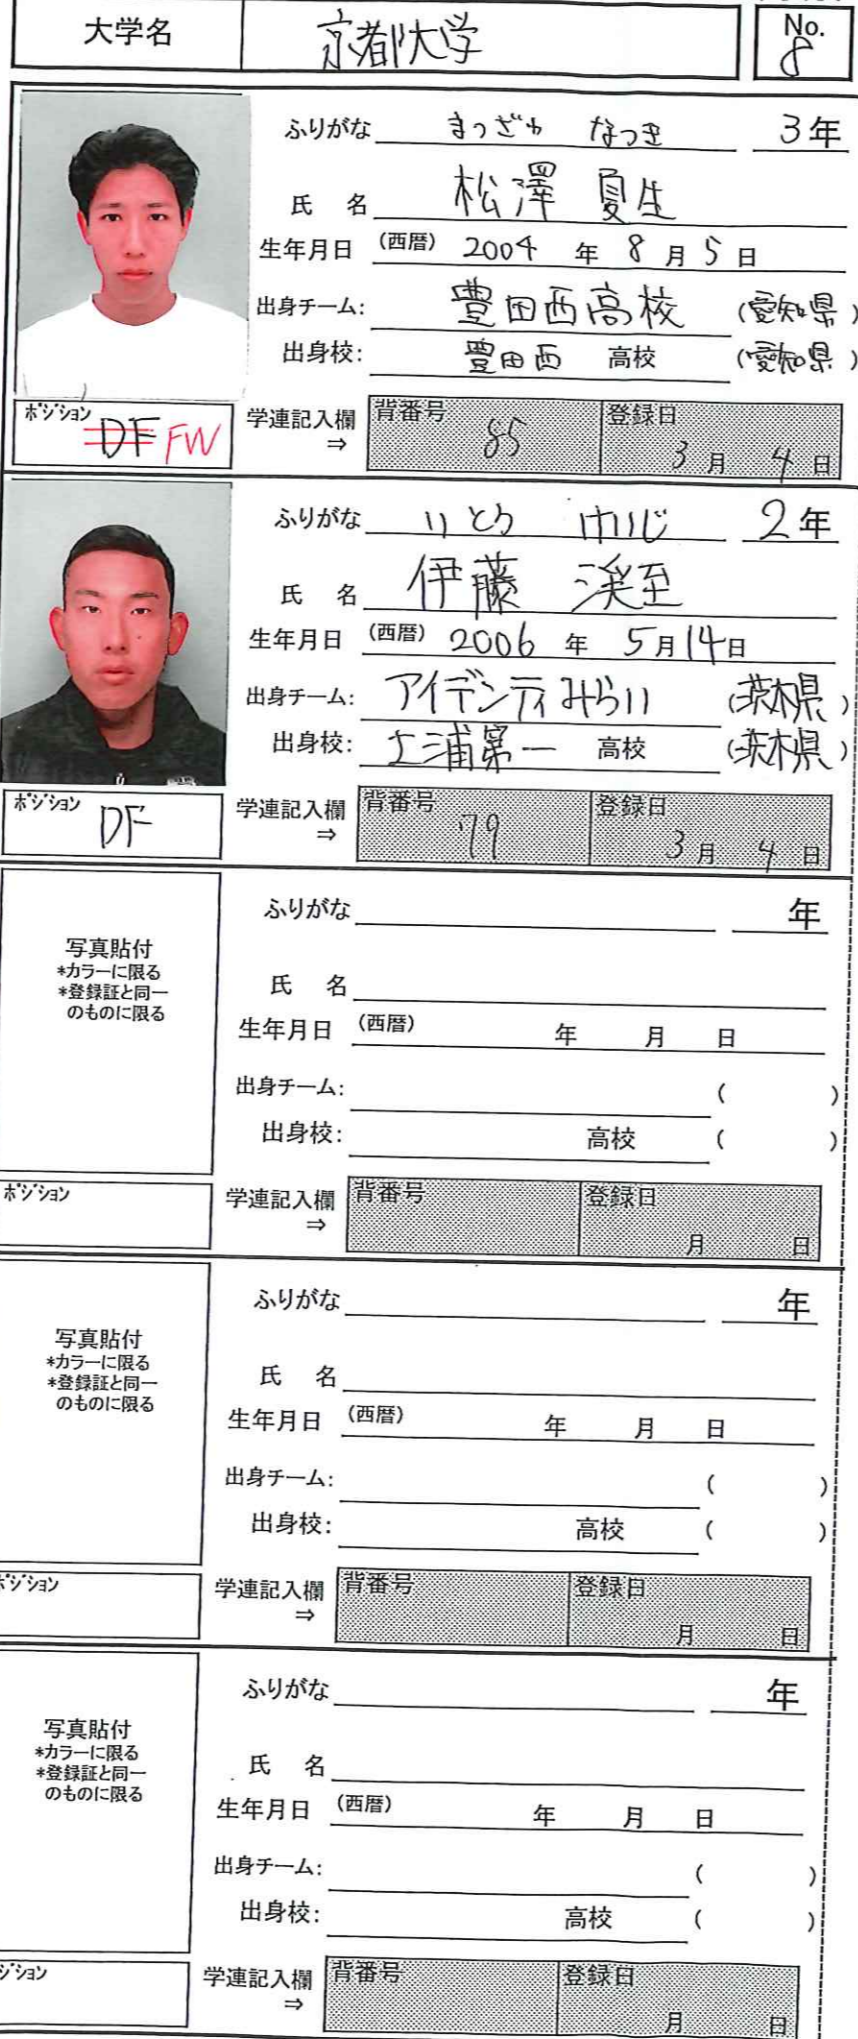 大学名 京都大学 No. 8
ふりがな まつざわ なつき 3年
氏 名 松澤 夏生
生年月日 (西暦) 2004 年 8 月 5 日
出身チーム: 豊田西高校 (愛知県)
出身校: 豊田西 高校 (愛知県)
ポジション DF FW 学連記入欄 ⇒ 背番号 85 登録日 3 月 4 日
ふりがな いとう けいじ 2年
氏 名 伊藤 渓至
生年月日 (西暦) 2006 年 5月14日
出身チーム: アイデンティみらい (茨木県)
出身校: 土浦第一 高校 (茨木県)
ポジション DF 学連記入欄 ⇒ 背番号 79 登録日 3 月 4 日
写真貼付
*カラーに限る
*登録証と同一
のものに限る
ふりがな 年
氏 名
生年月日 (西暦) 年 月 日
出身チーム: ( )
出身校: 高校 ( )
ポジション 学連記入欄 ⇒ 背番号 登録日 月 日
写真貼付
*カラーに限る
*登録証と同一
のものに限る
ふりがな 年
氏 名
生年月日 (西暦) 年 月 日
出身チーム: ( )
出身校: 高校 ( )
ポジション 学連記入欄 ⇒ 背番号 登録日 月 日
写真貼付
*カラーに限る
*登録証と同一
のものに限る
ふりがな 年
氏 名
生年月日 (西暦) 年 月 日
出身チーム: ( )
出身校: 高校 ( )
ジション 学連記入欄 ⇒ 背番号 登録日 月 日